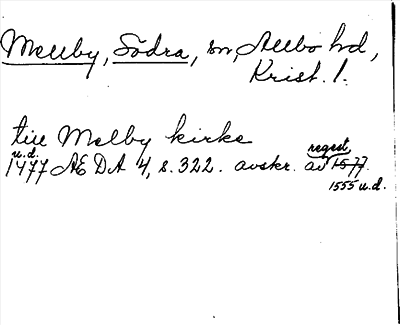 Mellby, Södra, sn, Albo hd,
Krist. l.
till Melby kirke
u.d.
regest
1477 ÆDA 4, s. 322. avskr. av 1577.
1555 u.d.